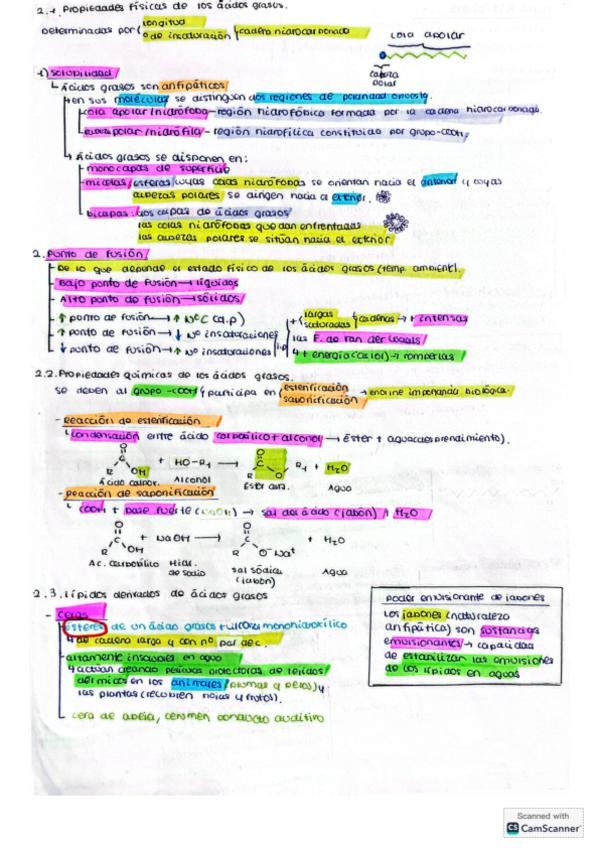 2.1 Propiedades físicas de los ácidos grasos.
Determinadas por longitud
º de insaturación cadena hidrocarbonada
cola apolar
cabeza polar
1) solubilidad
Ácidos grasos son antipáticos
en sus moléculas se distinguen dos regiones de polaridad opuesta.
cola apolar/hidrófoba - región hidrofóbica formada por la cadena hidrocarbonada.
polar/hidrófila - región hidrofílica constituida por grupo -COOH
Ácidos grasos se disponen en:
monocapas de superficie
micelas/esferas cuyas colas hidrófobas se orientan hacia el anterior y cuyas
cabezas polares se dirigen hacia el exterior.
bicapas: dos capas de ácidos grasos
las colas hidrófobas quedan enfrentadas
las cabezas polares se sitúan hacia el exterior
2. Punto de fusión
De lo que depende el estado físico de los ácidos grasos (temp. ambiente).
Bajo punto de fusión → líquidos
Alto punto de fusión → sólidos
↑ punto de fusión → ↑ NºC (a.p)
↑ punto de fusión → ↓ Nº insaturaciones
↓ punto de fusión → ↑ Nº insaturaciones
+ largas saturadas cadenas → + intensas
las F. de Van der Waals
y + energía (calor) → romperlas
2.2. Propiedades químicas de los ácidos grasos.
se deben al grupo -COOH y participa en esterificación
saponificación → enorme importancia biológica.
- Reacción de esterificación
condensación entre ácido carboxílico + alcohol → Éster + agua (desprendimiento).
O
R C OH + HO-R1 → O C R O R1 + H2O
Ácido carbox. Alcohol Éster Agua
- Reacción de saponificación
COOH + base fuerte (NaOH) → sal del ácido (jabón) H2O
O
R C OH + NaOH → O C R O⁻Na⁺ + H2O
Ac. carboxílico Hidr. de sodio sal sódica (jabón) Agua
2.3. Lípidos derivados de ácidos grasos
- Ceras
ésteres de un ácido graso + monohidroxílico
de cadena larga y con nº par de C.
altamente insolubles en agua
actúan creando películas protectoras de tejidos
dérmicos en los animales (plumas y pelos) y
las plantas (recubren hojas y frutos).
cera de abeja, cerumen conducto auditivo
poder emulsionante de jabones
Los jabones (naturaleza
antipática) son sustancias
emulsionantes → capacidad
de estabilizar las emulsiones
de los lípidos en aguas
Scanned with
CS CamScanner